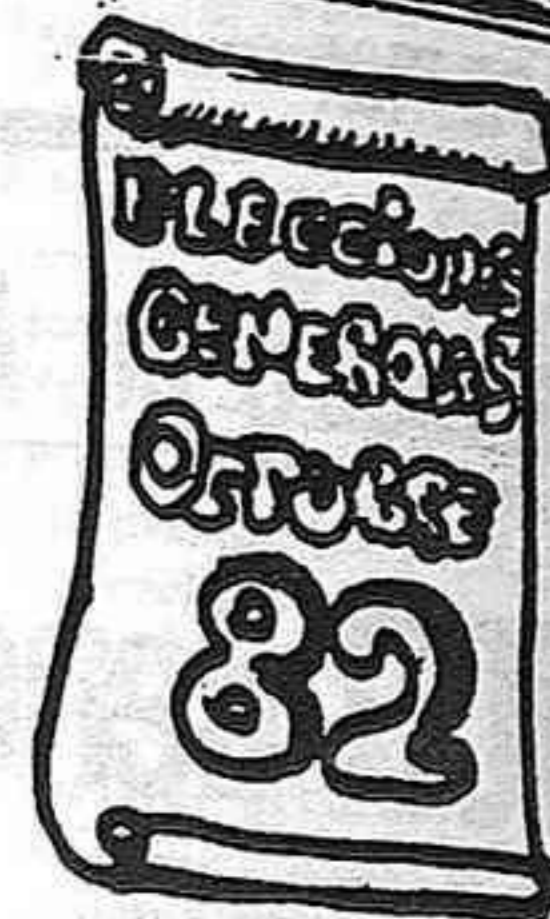 ELECCIONES
GENERALES
OCTUBRE
82